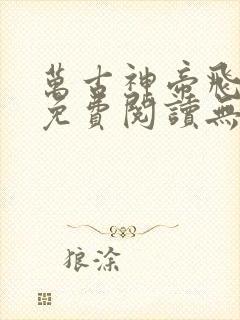 萬古神帝飛
免費閱讀無
狼涂